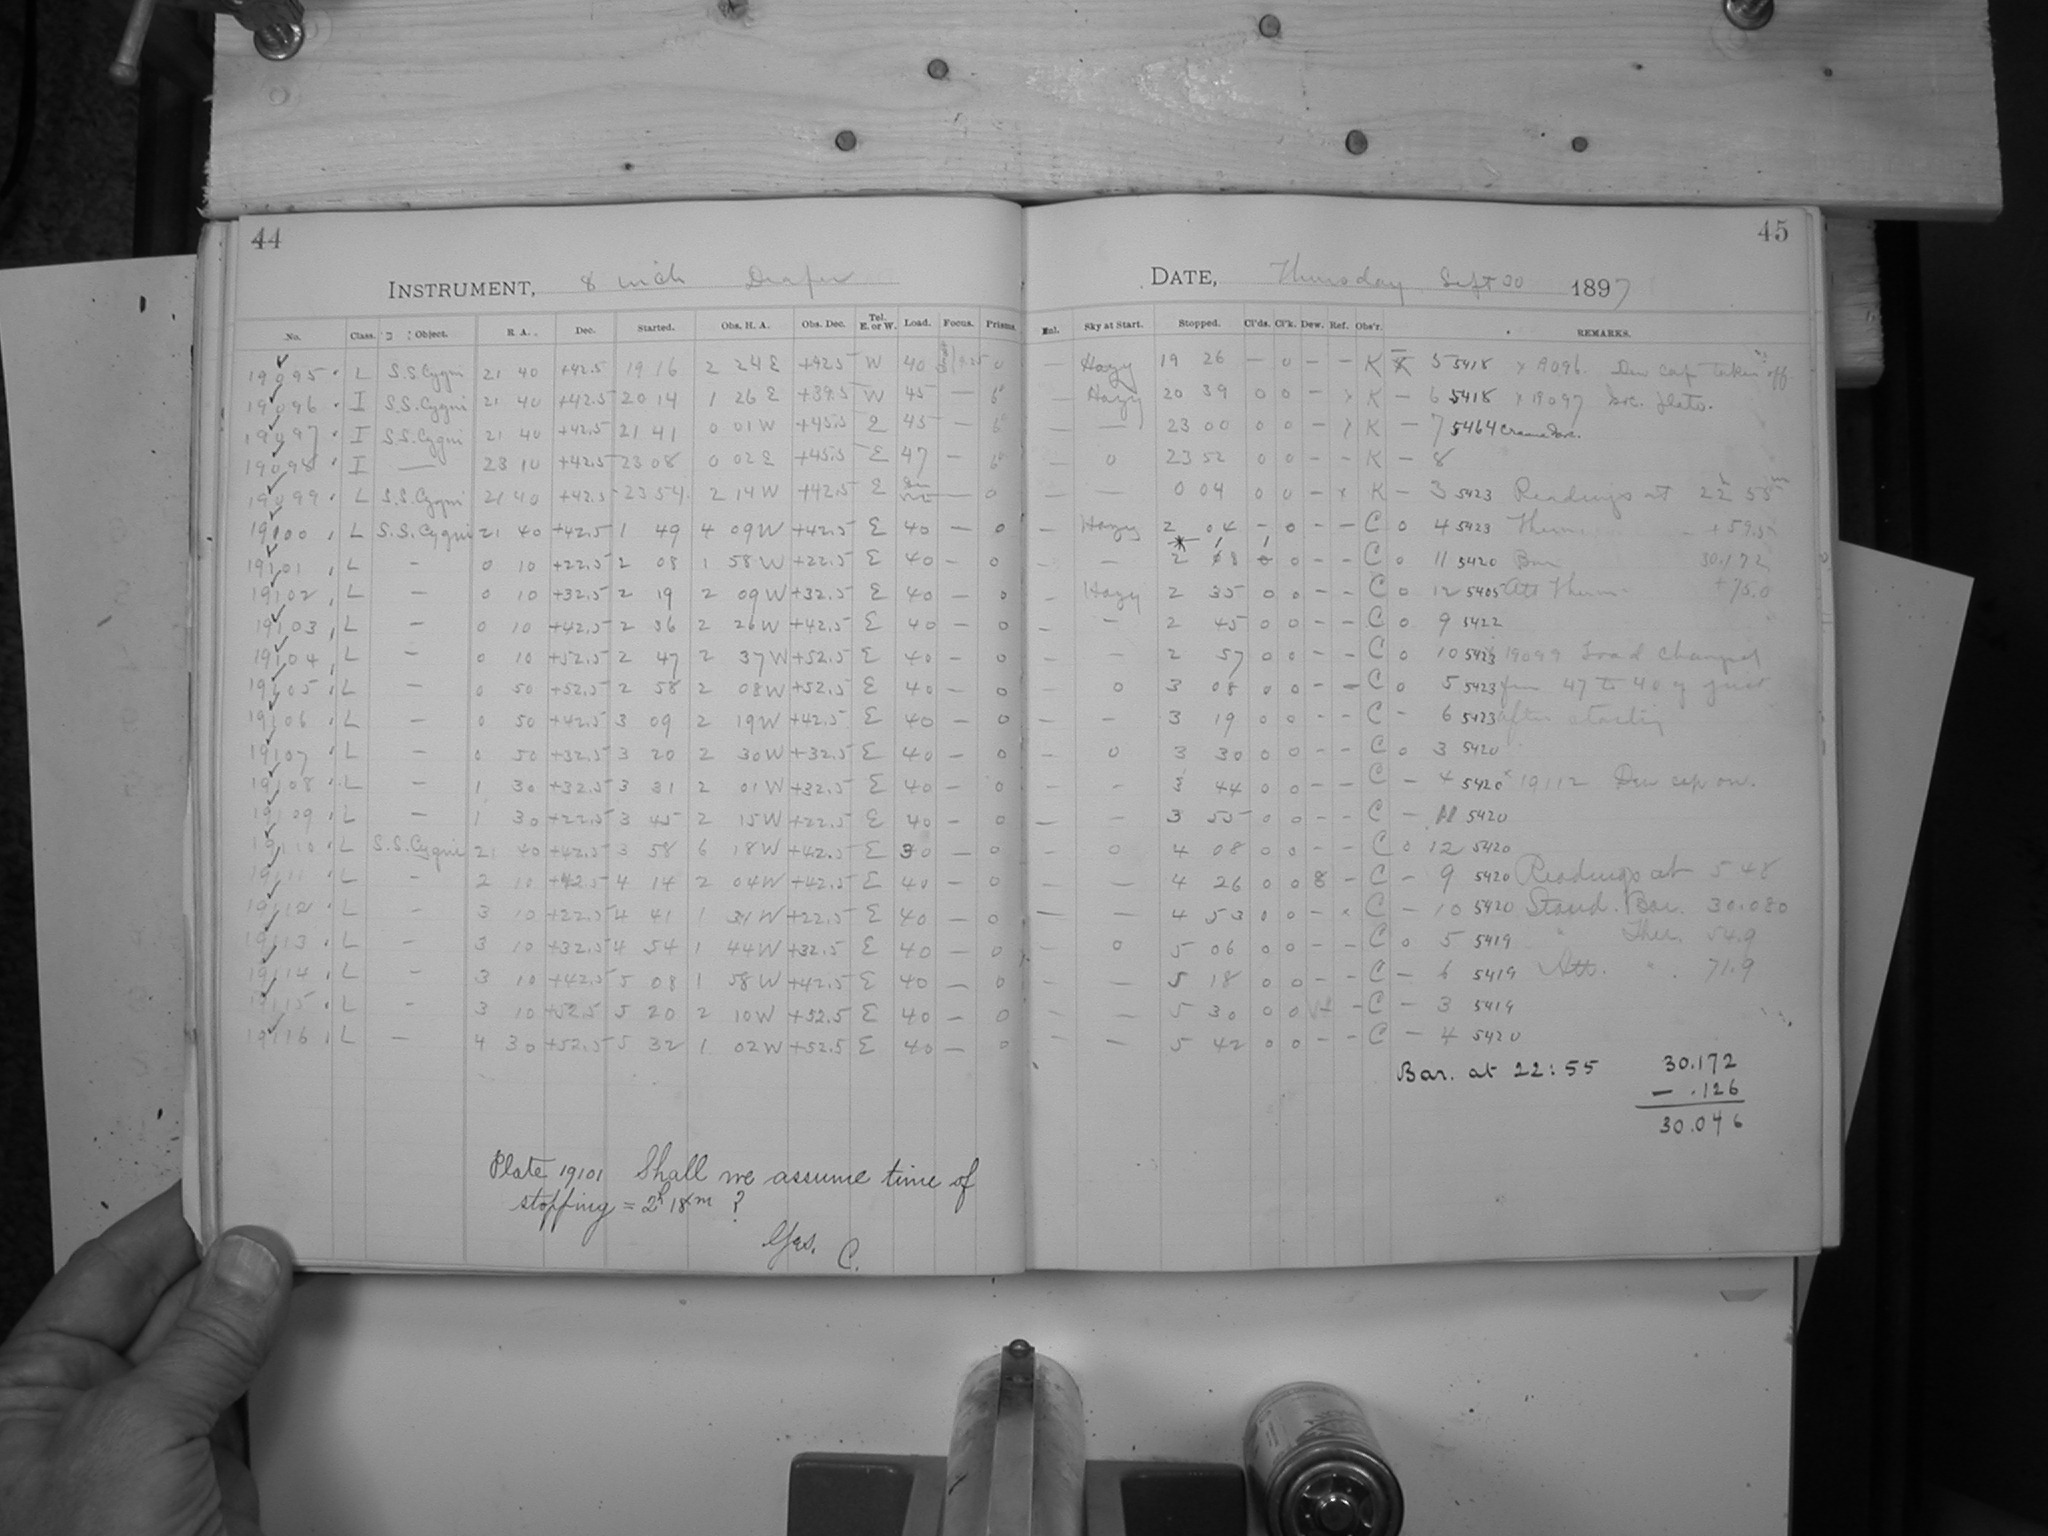 44
INSTRUMENT, 8 inch Draper
No. Class. Object. R. A. Dec. Started. Obs. H. A. Obs. Dec. Tel. E. or W. Load. Focus. Prisms.
19095 L S.S Cygni 21 40 +42.5 19 16 2 24 E +42.5 W 40 0
19096 I S.S. Cygni 21 40 +42.5 20 14 1 26 E +39.5 W 45 — 6°
19097 I S.S. Cygni 21 40 +42.5 21 41 0 01 W +45.5 E 45 — 6°
19098 I — 23 10 +42.5 23 08 0 02 E +45.5 E 47 — 6°
19099 L S.S. Cygni 21 40 +42.5 23 54 2 14 W +42.5 E — 0
19100 L S.S. Cygni 21 40 +42.5 1 49 4 09 W +42.5 E 40 — 0
19101 L - 0 10 +22.5 2 08 1 58 W +22.5 E 40 — 0
19102 L - 0 10 +32.5 2 19 2 09 W +32.5 E 40 — 0
19103 L - 0 10 +42.5 2 36 2 26 W +42.5 E 40 — 0
19104 L - 0 10 +52.5 2 47 2 37 W +52.5 E 40 — 0
19105 L - 0 50 +52.5 2 58 2 08 W +52.5 E 40 — 0
19106 L - 0 50 +42.5 3 09 2 19 W +42.5 E 40 — 0
19107 L - 0 50 +32.5 3 20 2 30 W +32.5 E 40 — 0
19108 L - 1 30 +32.5 3 31 2 01 W +32.5 E 40 — 0
19109 L - 1 30 +22.5 3 45 2 15 W +22.5 E 40 — 0
19110 L S.S. Cygni 21 40 +42.5 3 58 6 18 W +42.5 E 30 — 0
19111 L - 2 10 +42.5 4 14 2 04 W +42.5 E 40 — 0
19112 L - 3 10 +22.5 4 41 1 31 W +22.5 E 40 — 0
19113 L - 3 10 +32.5 4 54 1 44 W +32.5 E 40 — 0
19114 L - 3 10 +42.5 5 08 1 58 W +42.5 E 40 — 0
19115 L - 3 10 +52.5 5 20 2 10 W +52.5 E 40 — 0
19116 L - 4 30 +52.5 5 32 1 02 W +52.5 E 40 — 0
Plate 19101 Shall we assume time of
stopping = 2h 18m ?
Yes. C.
45
DATE, Thursday Sept 30 1897
Enl. Sky at Start. Stopped. Cl'ds. Cl'k. Dew. Ref. Obs'r. REMARKS.
— Hazy 19 26 — 0 — — K 5 5418 Dew cap taken off
— Hazy 20 39 0 0 — x K — 6 5418 x 19097
— — 23 00 0 0 — x K — 7 5464
— 0 23 52 0 0 — — K — 8
— — 0 04 0 0 — x K — 3 5423 Readings at 22h 55m
— Hazy 2 04 — 0 — — C 0 4 5423 Therm. +59.5
— — 2 0 — — C 0 11 5420 Bar 30.172
— Hazy 2 35 0 0 — — C 0 12 5405 Att Therm. +75.0
— — 2 45 0 0 — — C 0 9 5422
— — 2 57 0 0 — — C 0 10 5423 19099 Load changed
— 0 3 08 0 0 — — C 0 5 5423 from 47 to 40 just
— — 3 19 0 0 — — C — 6 5423 after starting
— 0 3 30 0 0 — — C 0 3 5420
— — 3 44 0 0 — — C — 4 5420 x 19112 Dew cap on.
— — 3 55 0 0 — — C — 11 5420
— 0 4 08 0 0 — — C 0 12 5420
— — 4 26 0 0 8 — C — 9 5420 Readings at 5 48
— — 4 53 0 0 — x C — 10 5420 Stand. Bar. 30.080
— 0 5 06 0 0 — — C 0 5 5419 " Ther. 54.9
— — 5 18 0 0 — — C — 6 5419 Att. " 71.9
— — 5 30 0 0 — C — 3 5419
— — 5 42 0 0 — — C — 4 5420
Bar. at 22:55 30.172
— .126
30.046